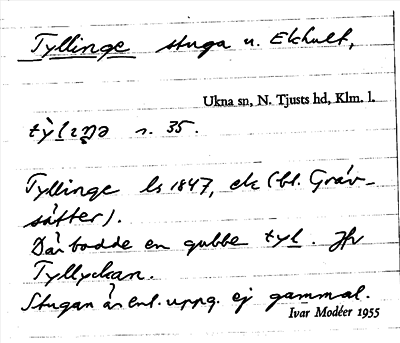 Tyllinge stuga u. Ekhult,
Ukna sn, N. Tjusts hd, Klm. l.
s. 35.
Tyllinge ls 1847, ek (bl. Gräv-
sätter).
Där bodde en gubbe tyl. Jfr
Tyllyckan.
Stugan är enl. uppg. ej gammal.
Ivar Modéer 1955